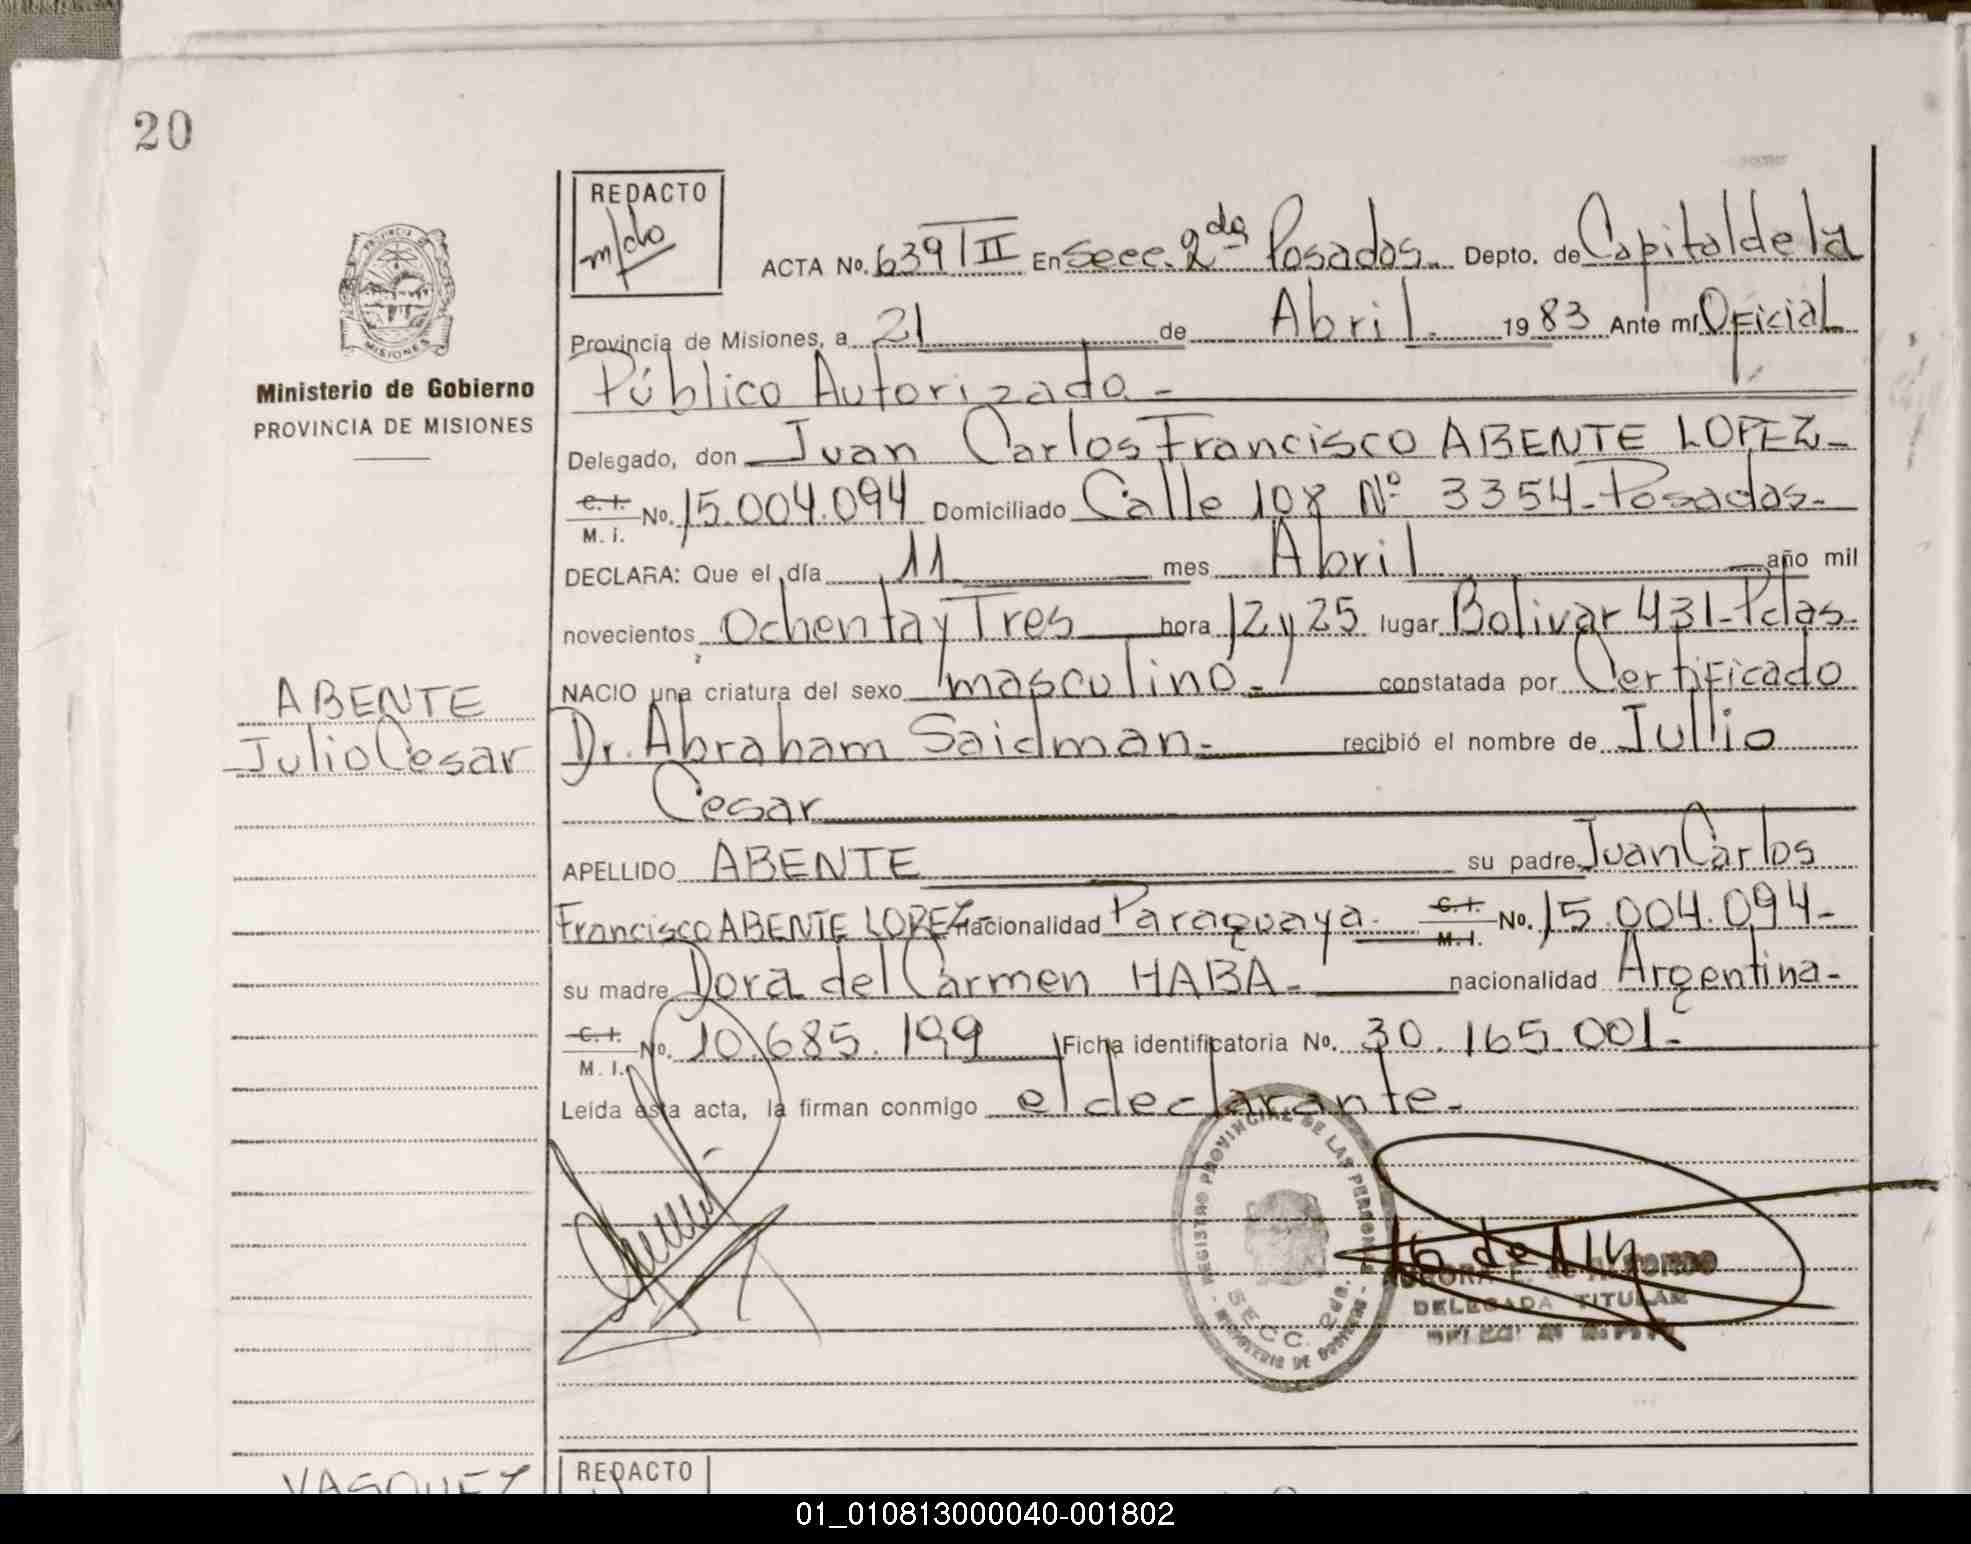 20
REDACTO
m/do
PROVINCIA DE
MISIONES
Ministerio de Gobierno
PROVINCIA DE MISIONES
ACTA No. 639 T II En Secc. 2da Posadas. Depto. de Capital de la
Provincia de Misiones, a 21 de Abril. 19 83 Ante mí Oficial
Público Autorizado -
Delegado, don Juan Carlos Francisco ABENTE LOPEZ-
C. I. M. I. No. 15.004.094 Domiciliado Calle 108 Nº 3354-Posadas-
DECLARA: Que el día 11 mes Abril año mil
novecientos Ochenta y Tres hora 12 y 25 lugar Bolivar 431-Pdas-
NACIO una criatura del sexo masculino.- constatada por Certificado
Dr. Abraham Saidman- recibió el nombre de Jullio
Cesar
ABENTE
Julio Cesar
APELLIDO ABENTE su padre Juan Carlos
Francisco ABENTE LOPEZ- nacionalidad Paraguaya- C. I. M. I. No. 15.004.094-
su madre Dora del Carmen HABA- nacionalidad Argentina-
C. I. M. I. No. 10.685.199 Ficha identificatoria No. 30.165.001-
Leída esta acta, la firman conmigo el declarante-
REGISTRO PROVINCIAL DE LAS PERSONAS
SECC. 2da.
MINISTERIO DE GOBIERNO
DELEGADA TITULAR
VASQUEZ
REDACTO
01_010813000040-001802